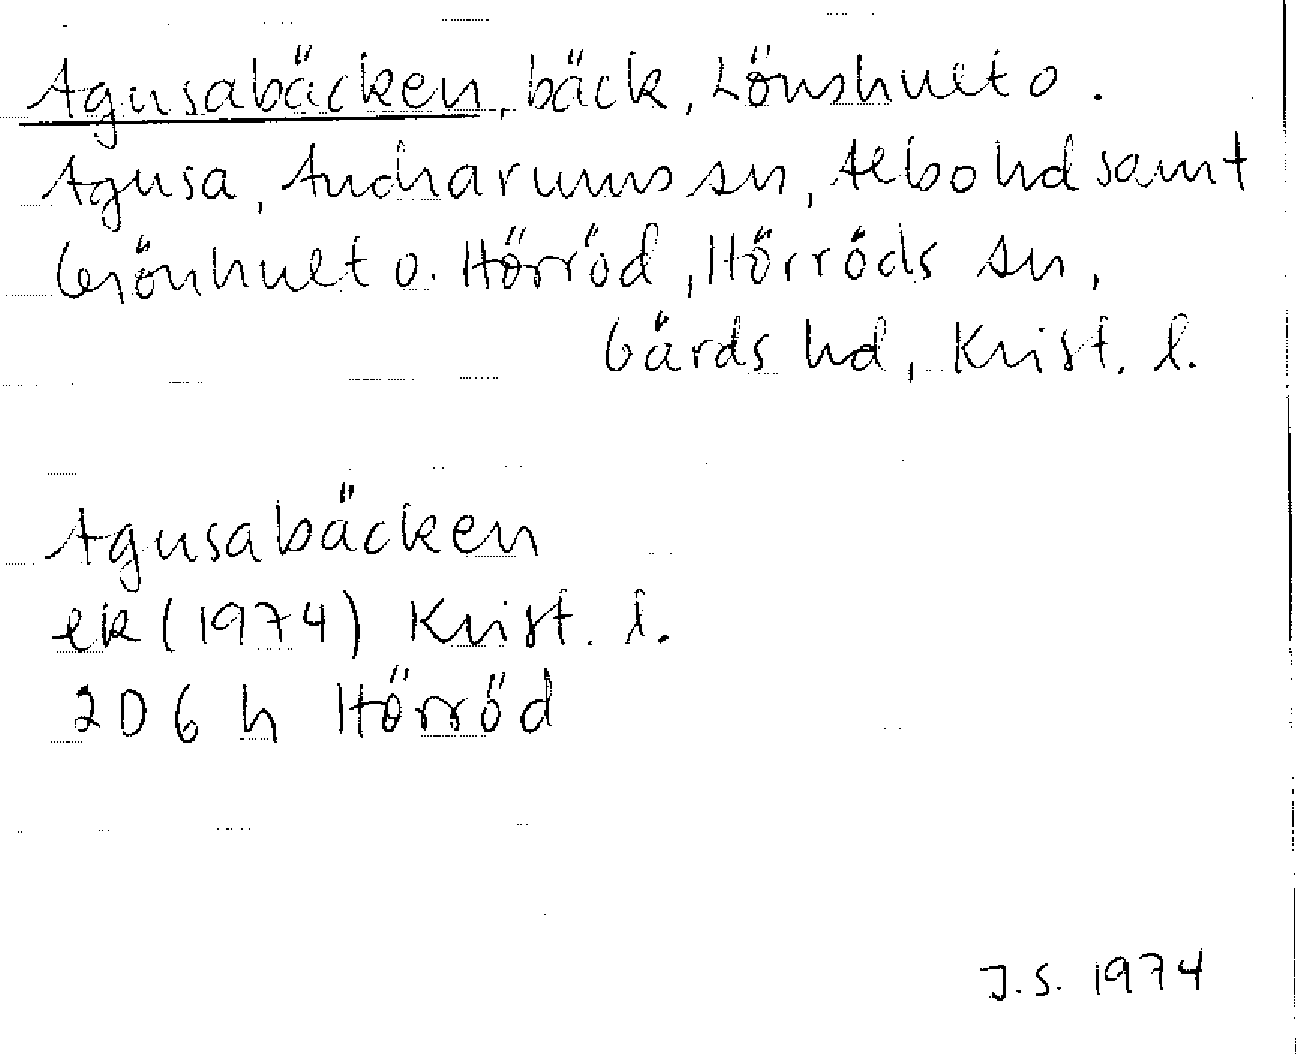 Agusabäcken, bäck, Lönshult o.
Agusa, Andrarums sn, Albo hd samt
Grönhult o. Hörröd, Hörröds sn,
Gärds hd, Krist. l.
Agusabäcken
ek (1974) Krist. l.
2D 6 h Hörröd
J.S. 1974